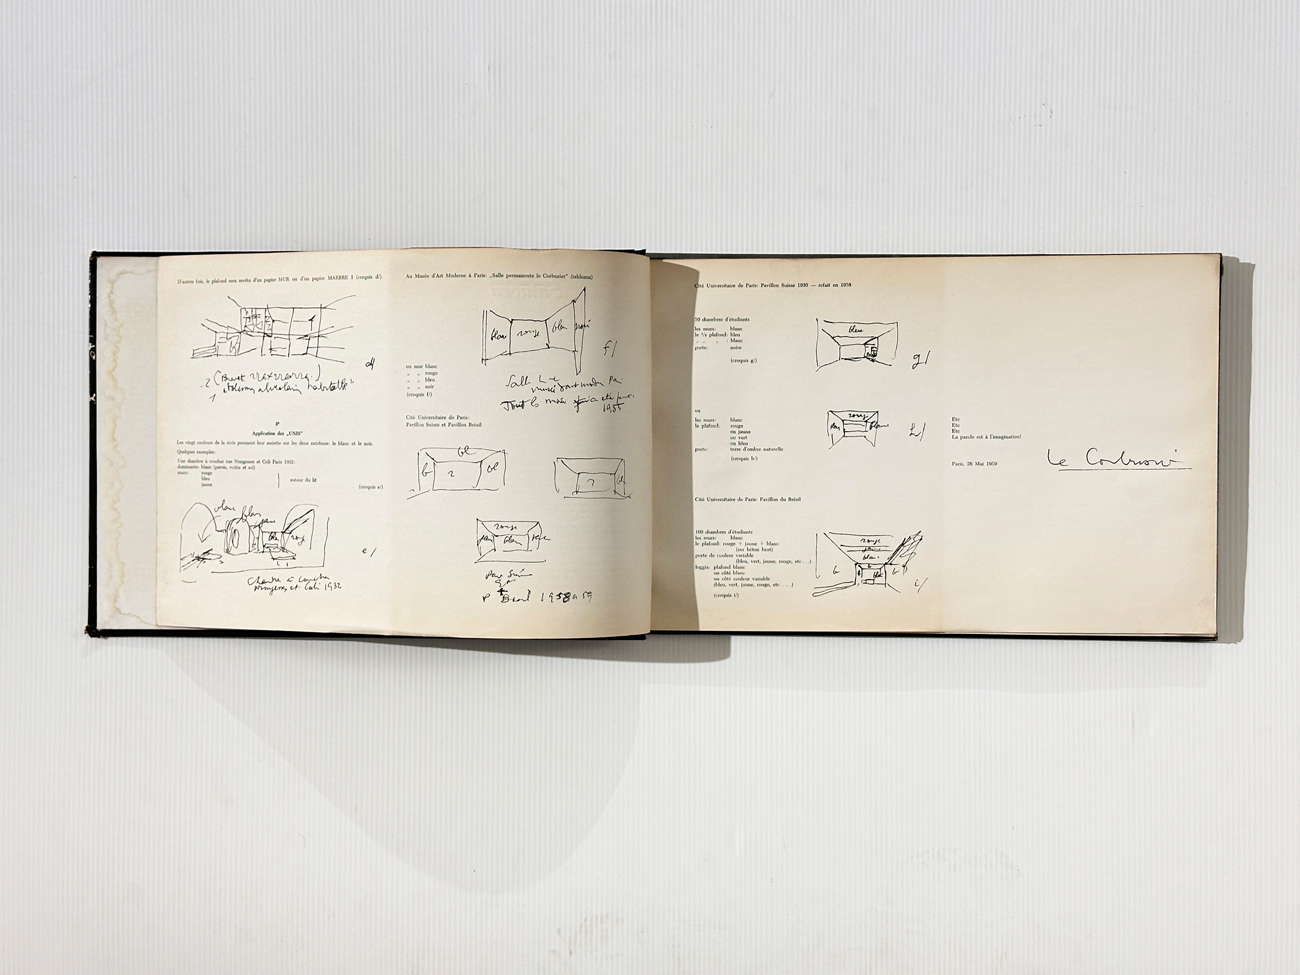 D'autres fois, le plafond sera revêtu d'un papier MUR ou d'un papier MARBRE I (croquis d/).
d/
habitable"
8º
Application des „UNIS"
Les vingt couleurs de la série prennent leur assiette sur les deux extrêmes: le blanc et le noir.
Quelques exemples:
Une chambre à coucher rue Nungesser et Coli Paris 1932:
dominante: blanc (parois, voûte et sol)
murs: rouge
bleu
jaune
autour du lit
(croquis e/)
blanc
blanc
e/
Chambre à coucher
Nungesser et Coli 1932
Au Musée d'Art Moderne à Paris: „Salle permanente le Corbusier" (tableaux)
blanc rouge bleu noir
f/
un mur blanc
„ „ rouge
„ „ bleu
„ „ noir
(croquis f/)
Salle L-C
musée d'art moderne Paris
1955
Cité Universitaire de Paris:
Pavillon Suisse et Pavillon Brésil
bl
b ? bl
? bl
rouge
blanc
Pav Suisse
et
P Brésil 1958 à 59
Cité Universitaire de Paris: Pavillon Suisse 1930 — refait en 1958
50 chambres d'étudiants
les murs: blanc
le ²/₃ plafond: bleu
„ „ „ : blanc
porte: noire
(croquis g/)
bleu
g/
ou
les murs: blanc
le plafond: rouge
ou jaune
ou vert
ou bleu
porte: terre d'ombre naturelle
(croquis h/)
rouge
blanc
h/
Cité Universitaire de Paris: Pavillon du Brésil
100 chambres d'étudiants
les murs: blanc
le plafond: rouge + jaune + blanc
(ou béton brut)
porte de couleur variable
(bleu, vert, jaune, rouge, etc . . .)
loggia: plafond blanc
un côté blanc
un côté couleur variable
(bleu, vert, jaune, rouge, etc . . . .)
(croquis i/)
rouge
jaune
blanc
b
i/
Etc
Etc
Etc
La parole est à l'imagination!
Paris, 28 Mai 1959
Le Corbusier